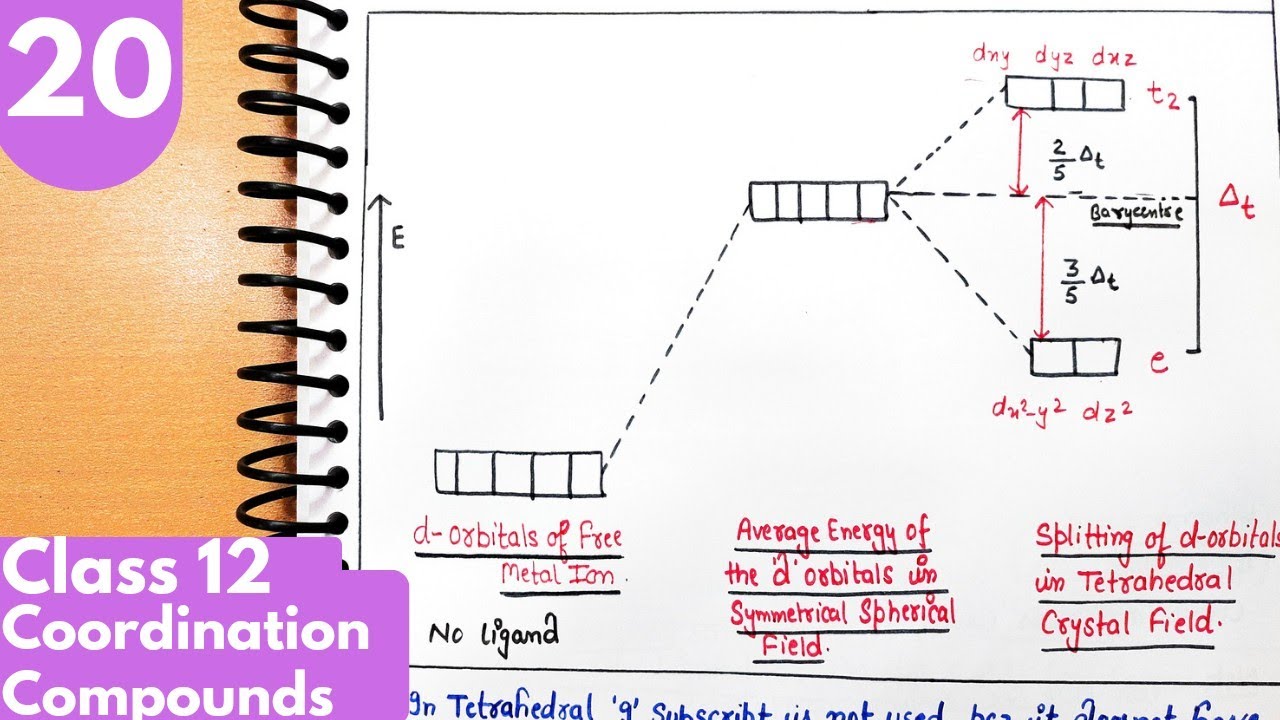 20
dxy dyz dxz
t2
2/5 Δt
Barycentre
Δt
E
3/5 Δt
e
dx²-y² dz²
d-orbitals of Free
Metal Ion.
No ligand
Average Energy of
the 'd' orbitals in
Symmetrical Spherical
Field.
Splitting of d-orbitals
in Tetrahedral
Crystal Field.
Class 12
Coordination
Compounds
In Tetrahedral 'g' Subscribt is not used bcz it